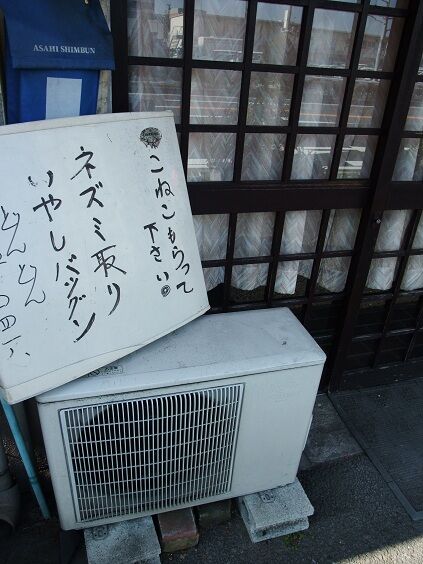 ASAHI SHIMBUN
●こねこもらって
下さい。
ネズミ取り
いやしバツグン
とんとん